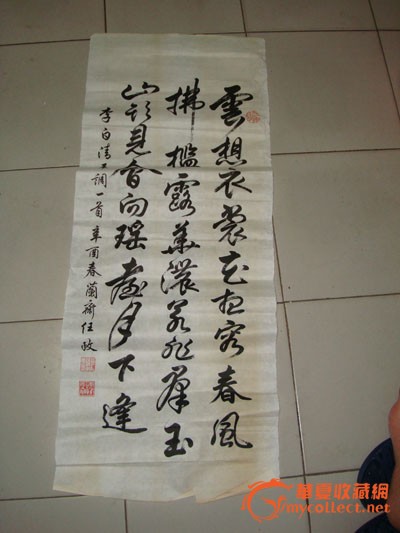 雲想衣裳花想容春風
拂檻露華濃若非羣玉
山頭見會向瑤臺月下逢
李白清平調一首 辛酉春蘭齋任政
華夏收藏網
mycollect.net